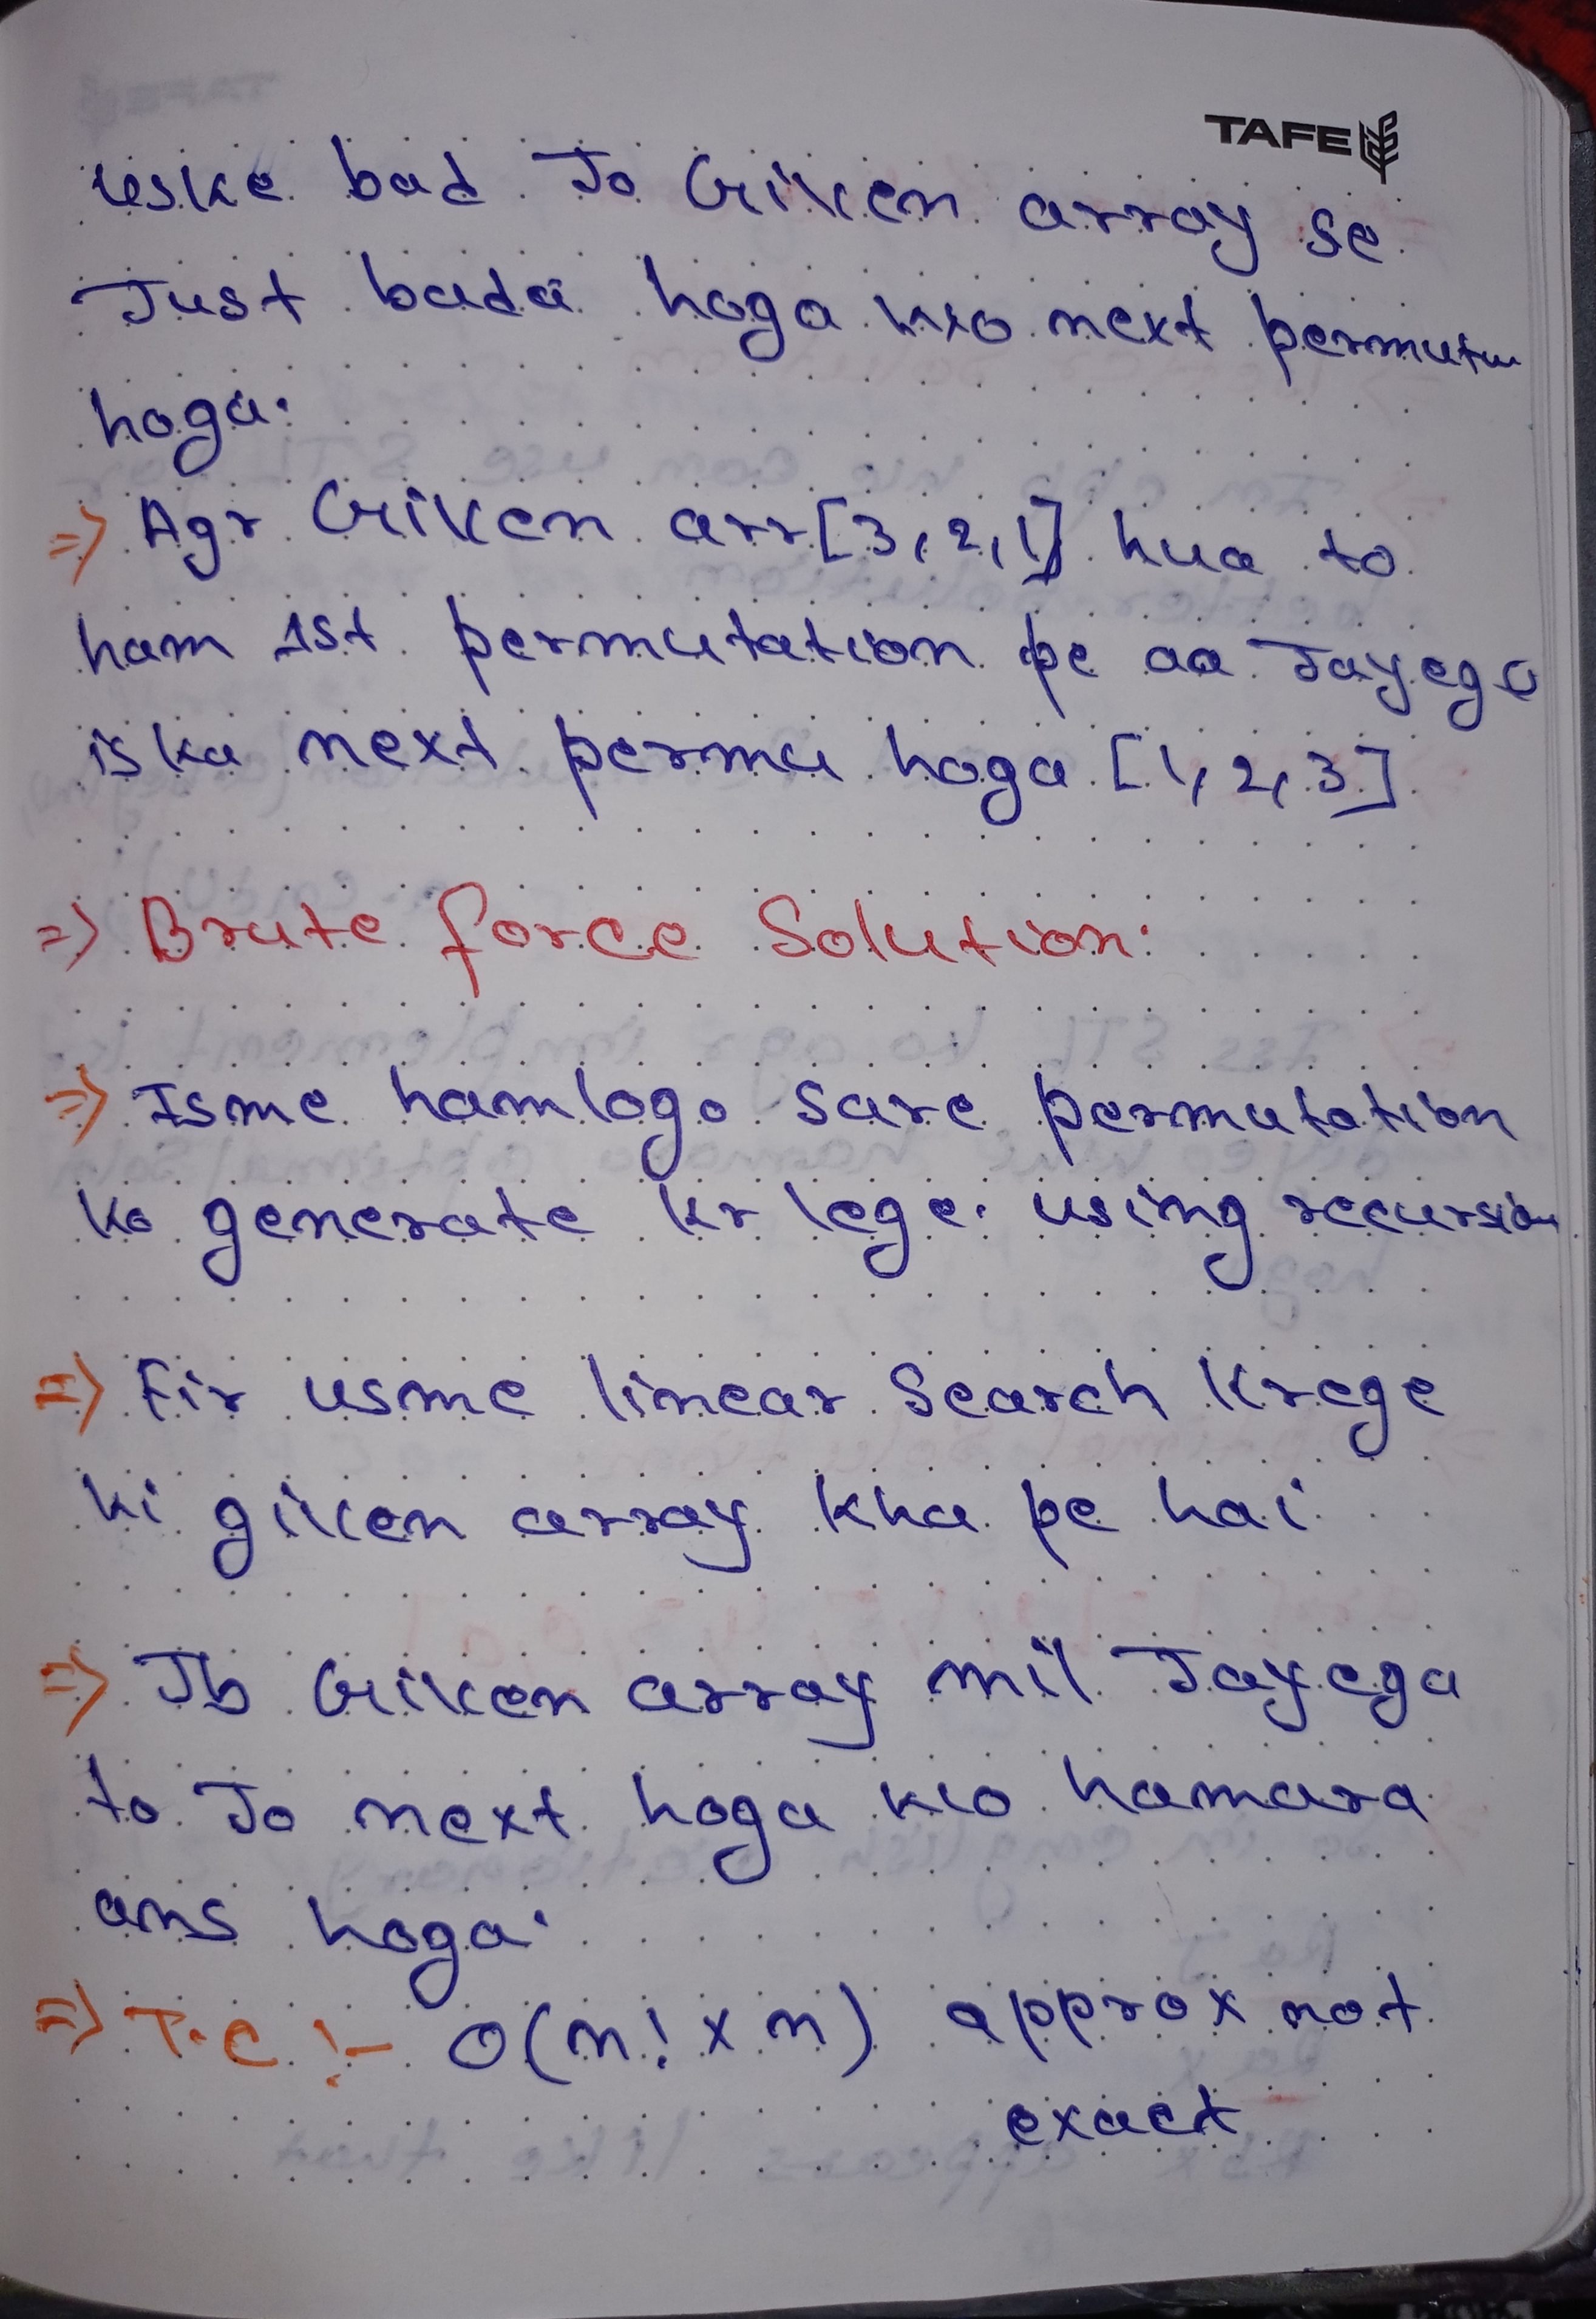 TAFE
uske bad Jo Given array se
Just bada hoga wo next permuta
hoga.
=> Agr Given arr[3,2,1] hua to
ham 1st permutation pe aa Jayega
iska next permu hoga [1,2,3]
=> Brute force Solution:
=> Isme hamlogo sare permutation
ko generate kr lege. using recursion
=> Fir usme linear Search Krege
ki given array kha pe hai
=> Jb Given array mil Jayega
to Jo next hoga wo hamara
ans hoga.
=> T.C :- O(n! x n) approx not
exact